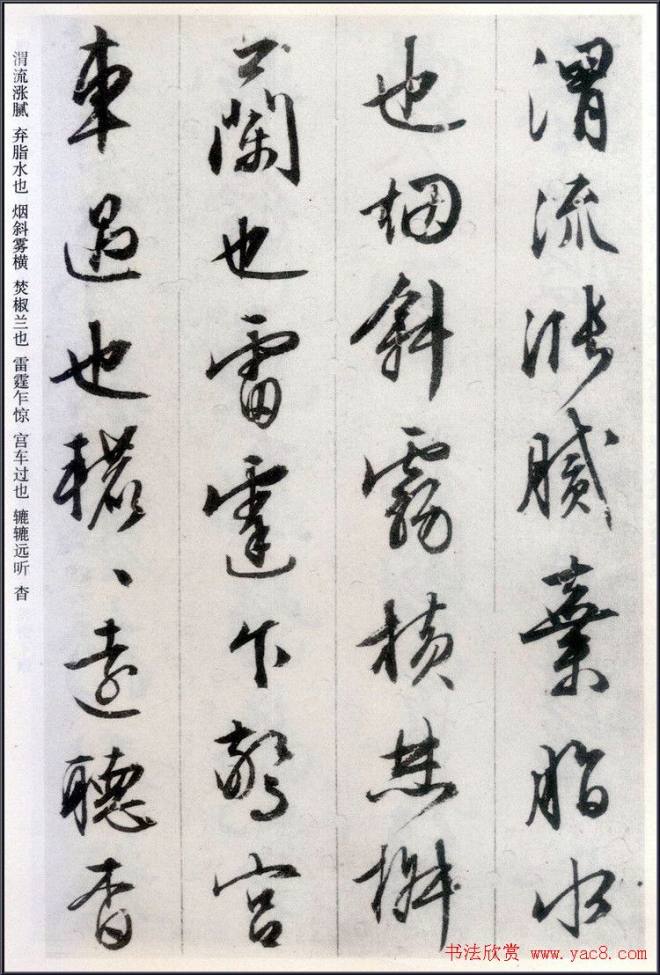 渭流漲膩棄脂水
也烟斜霧橫焚椒
蘭也雷霆乍驚宮
車過也轆、遠聽杳
渭流涨腻 弃脂水也 烟斜雾横 焚椒兰也 雷霆乍惊 宫车过也 辘辘远听 杳
书法欣赏 www.yac8.com